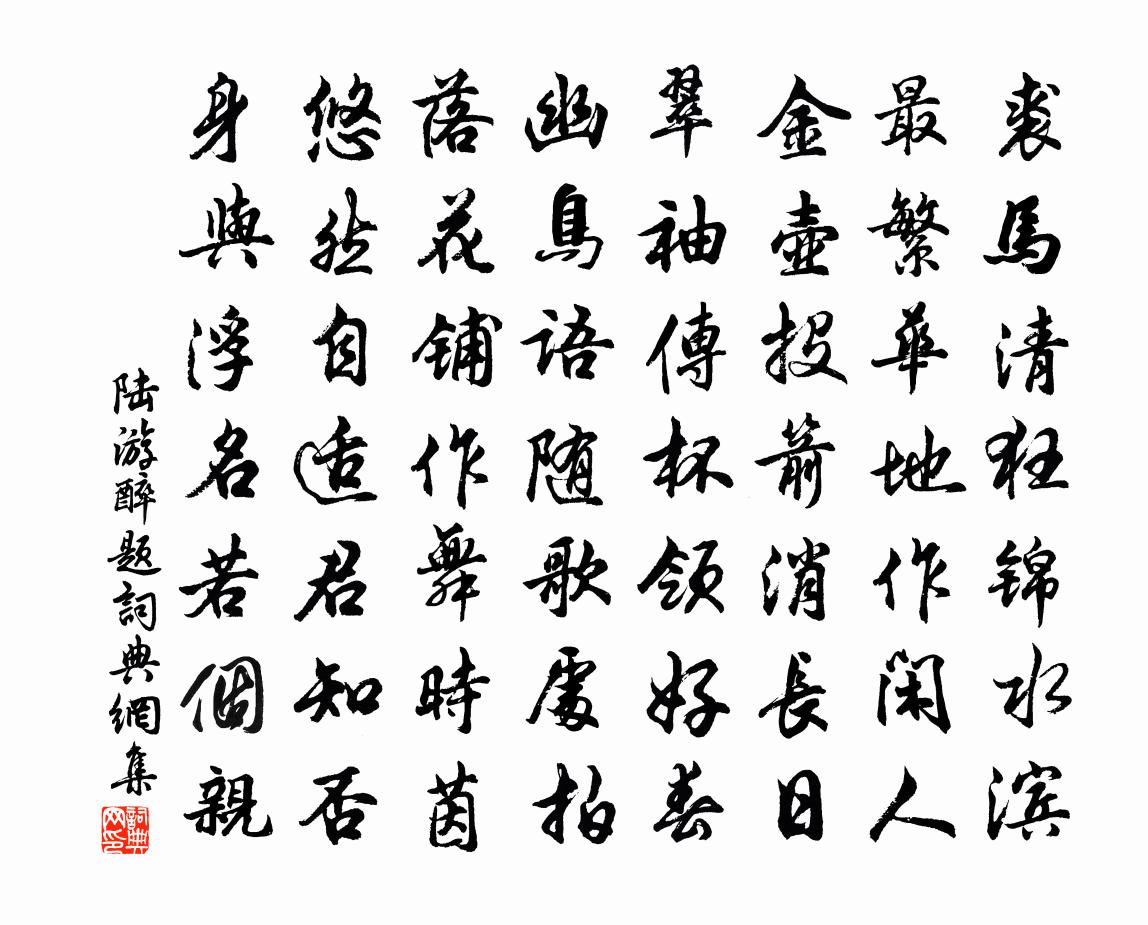 裘馬清狂锦水滨
最繁華地作闲人
金壶投箭消長日
翠袖傳杯领好春
幽鳥語随歌處拍
落花铺作舞時茵
悠然自适君知否
身與浮名若個親
陆游醉题詞典網集
詞典网印